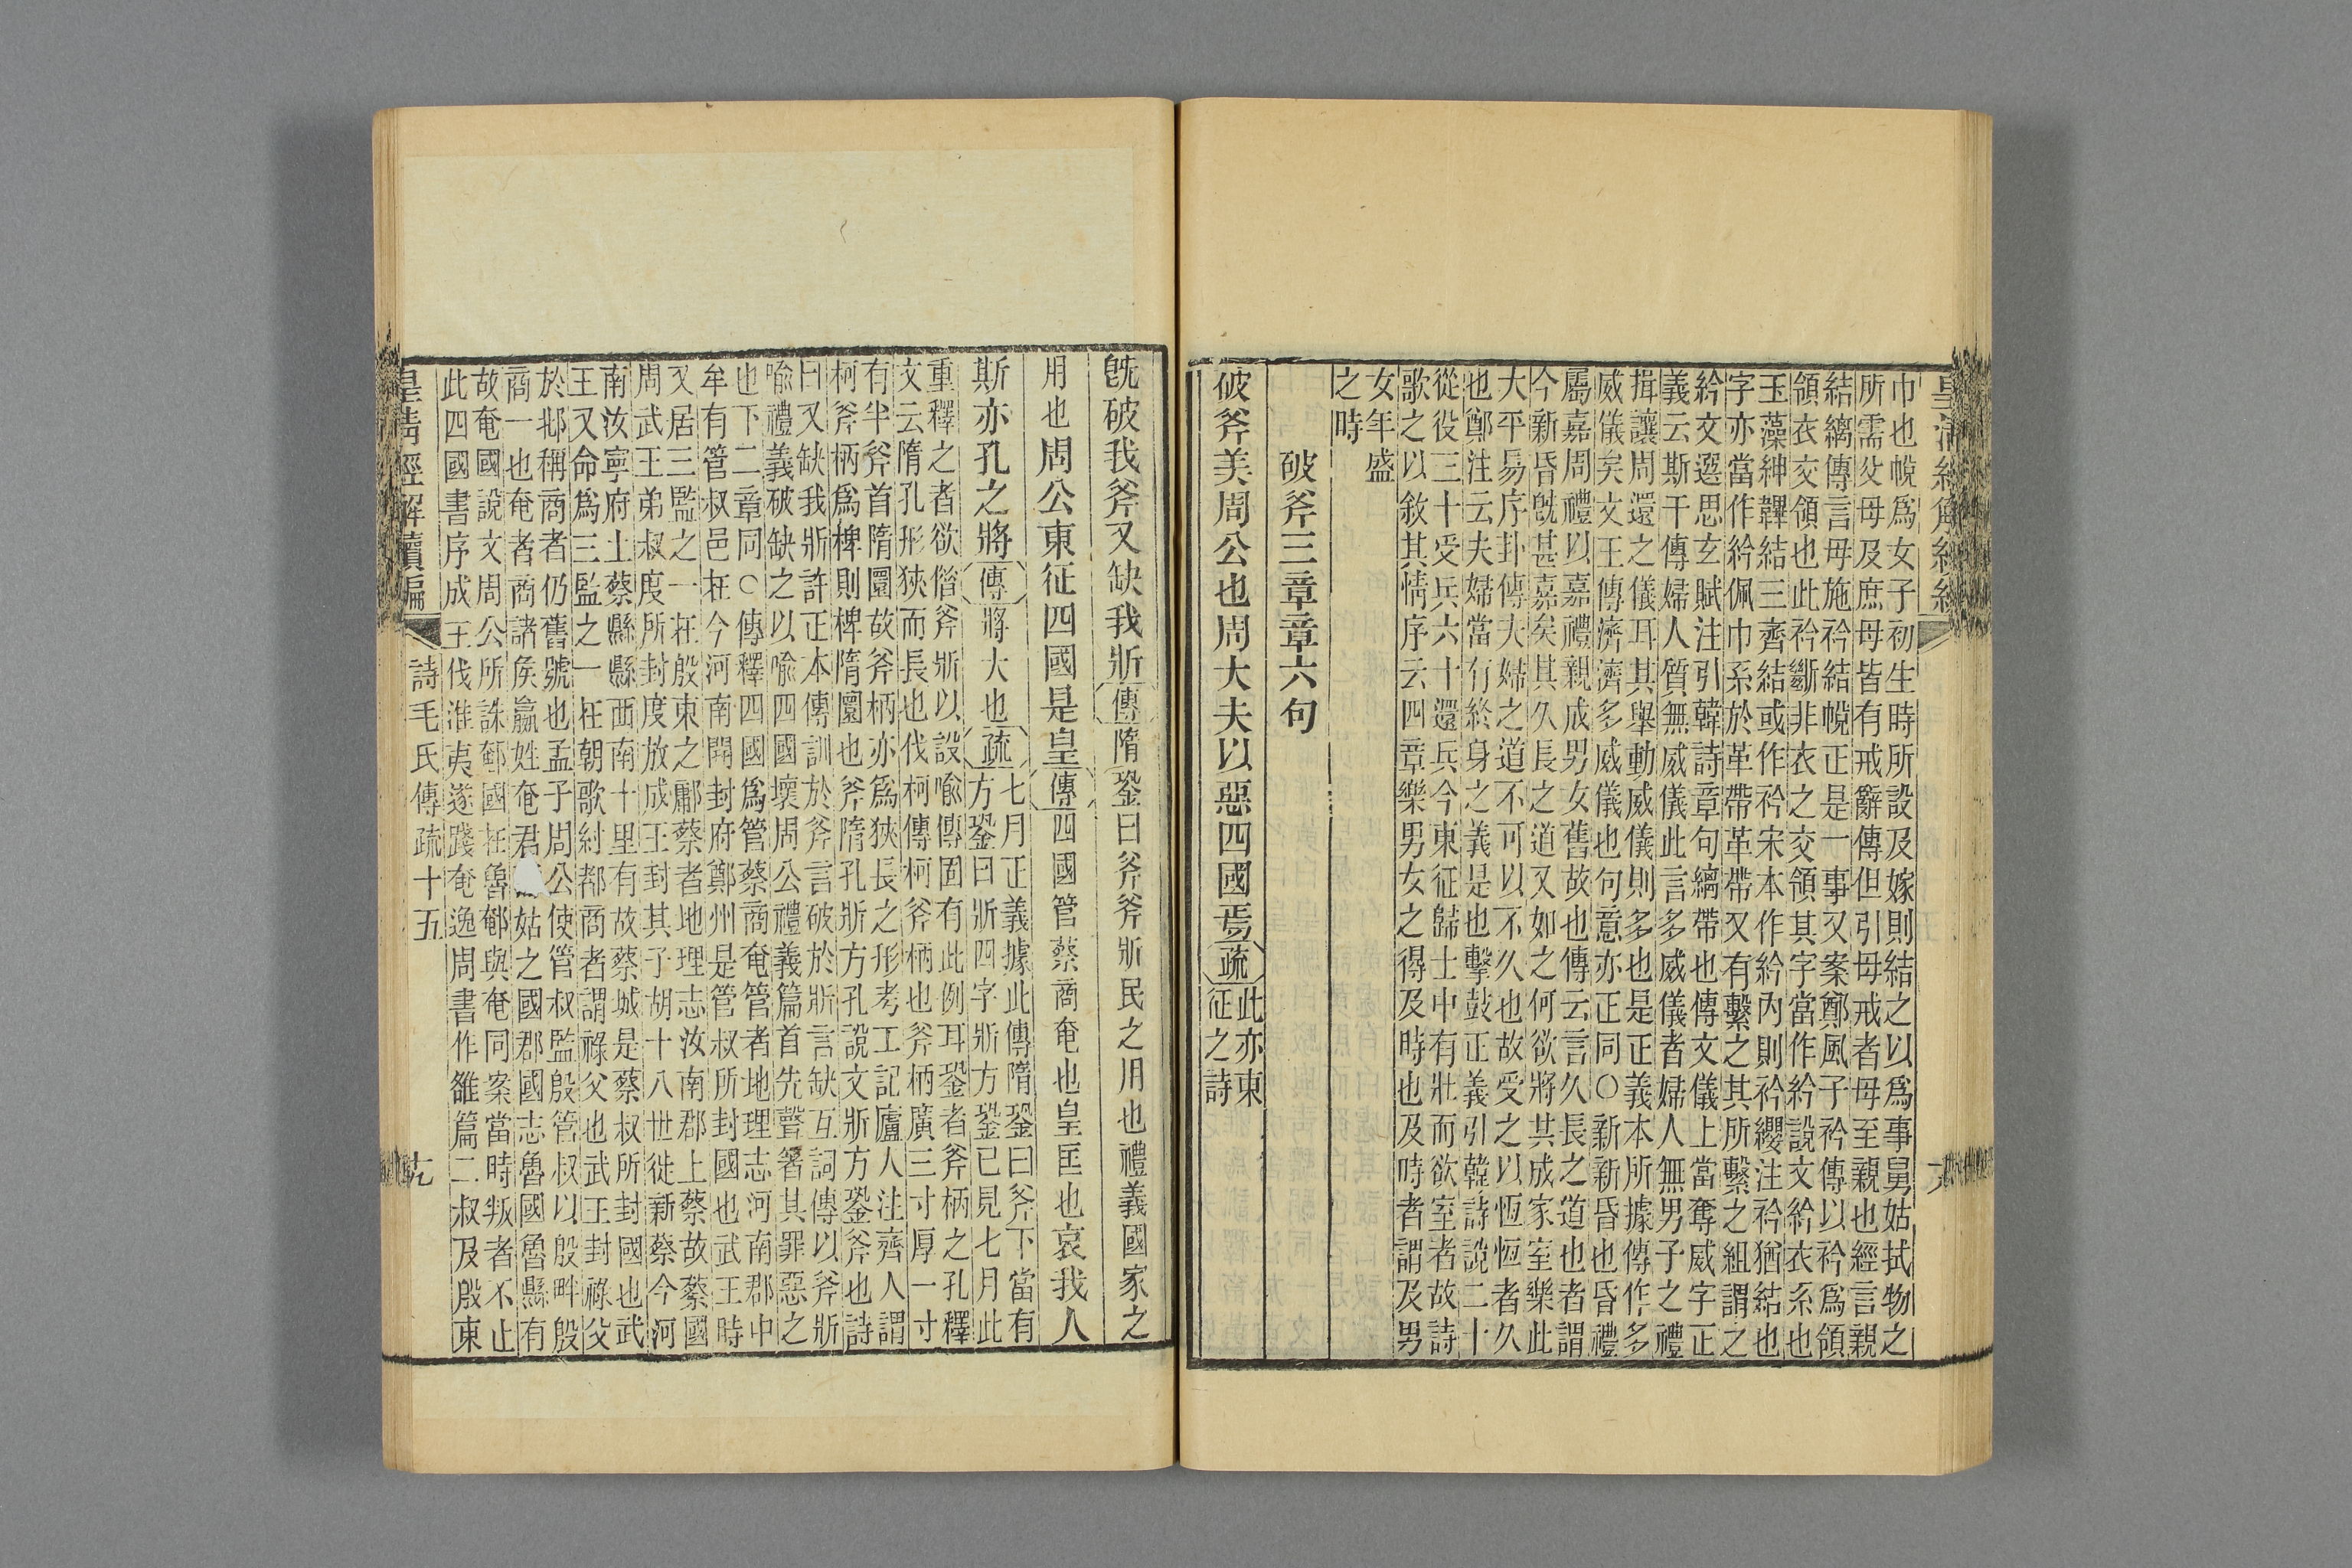 巾也帨爲女子初生時所設及嫁則結之以爲事舅姑拭物之
所需父母及庶母皆有戒辭傳但引母戒者母至親也經言親
結縭傳言母施衿結帨正是一事又案鄭風子衿傳以衿爲領
領衣交領也此衿㡭非衣之交領其字當作紟說文紟衣系也
玉藻紳韠結三齊結或作衿宋本作紟內則衿纓注衿猶結也
字亦當作紟佩巾系於革帶革帶又有繫之其所繫之組謂之
紟文選思玄賦注引韓詩章句縭帶也傳文儀上當奪威字正
義云斯干傳婦人質無威儀此言多威儀者婦人無男子之禮
揖讓周還之儀耳其舉動威儀則多也是正義本所據傳作多
威儀矣文王傳濟濟多威儀也句意亦正同○新新昏也昏禮
屬嘉周禮以嘉禮親成男女舊故也傳云言久長之道也者謂
今新昏旣甚嘉矣其久長之道又如之何欲將其成家室樂此
大平易序卦傳夫婦之道不可以不久也故受之以恆恆者久
也鄭注云夫婦當有終身之義是也擊鼓正義引韓詩說二十
從役三十受兵六十還兵今東征歸士中有壯而欲室者故詩
歌之以敘其情序云四章樂男女之得及時也及時者謂及男
女年盛
之時
破斧三章章六句
破斧美周公也周大夫以惡四國焉疏此亦東
征之詩
旣破我斧又缺我斨傳隋銎曰斧斧斨民之用也禮義國家之
用也周公東征四國是皇傳四國管蔡商奄也皇匡也哀我人
斯亦孔之將傳將大也疏七月正義據此傳隋銎曰斧下當有
方銎曰斨四字斨方銎已見七月此
重釋之者欲偕斧斨以設喻傳固有此例耳銎者斧柄之孔釋
文云隋孔形狹而長也伐柯傳柯斧柄也斧柄廣三寸厚一寸
有半斧首隋圜故斧柄亦爲狹長之形考工記廬人注齊人謂
柯斧柄爲椑則椑隋圜也斧隋孔斨方孔說文斨方銎斧也詩
曰又缺我斨許正本傳訓於斧言破於斨言缺互詞傳以斧斨
喻禮義破缺之以喻四國壞周公禮義篇首先聲箸其罪惡之
也下二章同○傳釋四國爲管蔡商奄管者地理志河南郡中
牟有管叔邑在今河南開封府鄭州是管叔所封國也武王時
又居三監之一在殷東之鄘蔡者地理志汝南郡上蔡故蔡國
周武王弟叔度所封度放成王封其子胡十八世徙新蔡今河
南汝寧府上蔡縣縣西南十里有故蔡城是蔡叔所封國也武
王又命爲三監之一在朝歌紂都商者謂祿父也武王封祿父
於邶稱商者仍舊號也孟子周公使管叔監殷管叔以殷畔殷
商一也奄者商諸侯嬴姓奄君姑之國郡國志魯國魯縣有
故奄國說文周公所誅𨛱國在魯𨛱與奄同案當時叛者不止
此四國書序成王伐淮夷遂踐奄逸周書作雒篇二叔及殷東
皇淸經解續編
詩毛氏傳疏十五